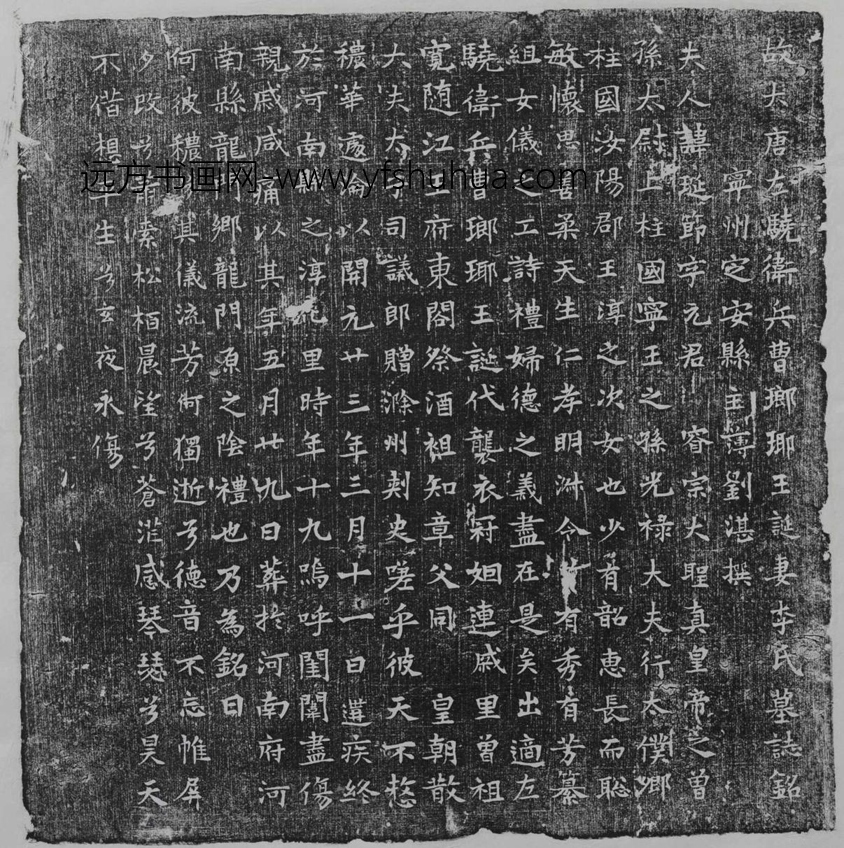 故大唐左驍衛兵曹瑯瑘王誕妻李氏墓誌銘
寧州定安縣主簿劉湛撰
夫人諱琁節字元君 睿宗大聖真皇帝之曾
孫太尉上柱國寧王之孫光祿大夫行太僕卿
柱國汝陽郡王淳之次女也少有韶惠長而聡
敏懷思喜柔天生仁孝明淑令 有秀有芳纂
組女儀之工詩禮婦德之義盡在是矣出適左
驍衛兵曹瑯瑘王誕代襲衣冠姻連戚里曾祖
寛随江 王府東閣祭酒祖知章父同 皇朝散
大夫太子司議郎贈滁州刾史嗟乎彼天不憗
穠華遽淪以開元廿三年三月十一日遘疾終
於河南 之淳化里時年十九嗚呼閨闈盡傷
親戚咸痛以其年五月廿九日葬於河南府河
南縣龍門鄉龍門原之陰禮也乃為銘曰
何彼穠 其儀流芳何獨逝兮德音不忘帷屏
夕改兮 素松栢晨望兮蒼茫感琴瑟兮昊天
不偕想平生兮玄夜永傷
远方书画网-www.yfshuhua.com